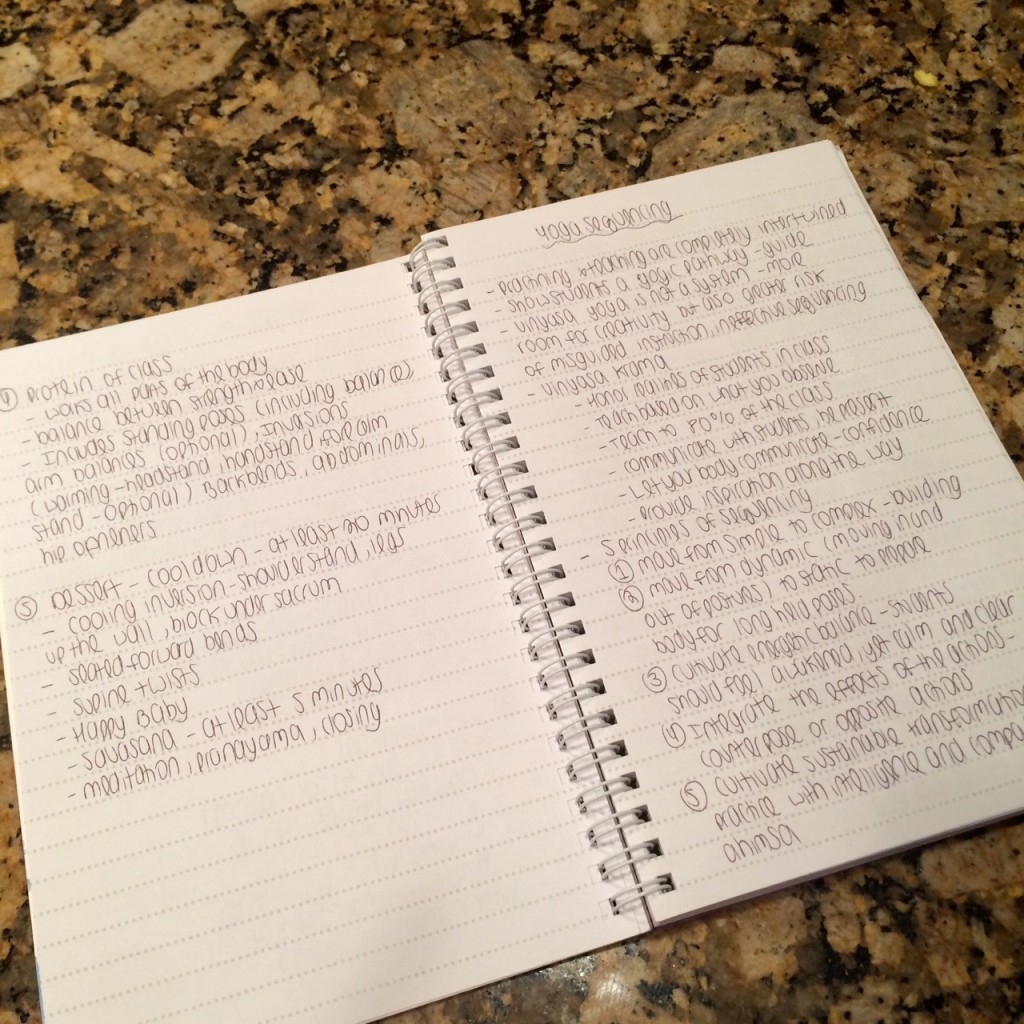 ④ protein of class
- works all parts of the body
- balance between strength & ease
- Includes standing poses (including balances)
arm balances (optional), Inversions
(warming - headstand, handstand, forearm
stand - optional) Backbends, abdominals,
hip openers
⑤ Dessert - cool down - at least 20 minutes
- cooling inversion - shoulderstand, legs
up the wall, block under sacrum
- seated forward bends
- supine twists
- Happy Baby
- savasana - at least 5 minutes
- meditation, pranayama, closing
yoga sequencing
- & learning are completely intertwined
- show students a yogic pathway - guide
- vinyasa yoga is not a system - more
room for creativity but also greater risk
of misguided instruction, ineffective sequencing
- vinyasa krama
- honor realities of students in class
- teach based on what you observe
- Teach to 80% of the class
- communicate with students, be present
- Let your body communicate - confidence
- Provide inspiration along the way
- 5 principles of sequencing
① move from simple to complex - building
② move from dynamic (moving in and
out of postures) to static to prepare
body for long held poses
③ cultivate energetic balance - students
should feel awakened, yet calm and clear
④ Integrate the effects of the actions -
counterpose or opposite actions
⑤ cultivate sustainable transformation
practice with intelligence and
ahimsa